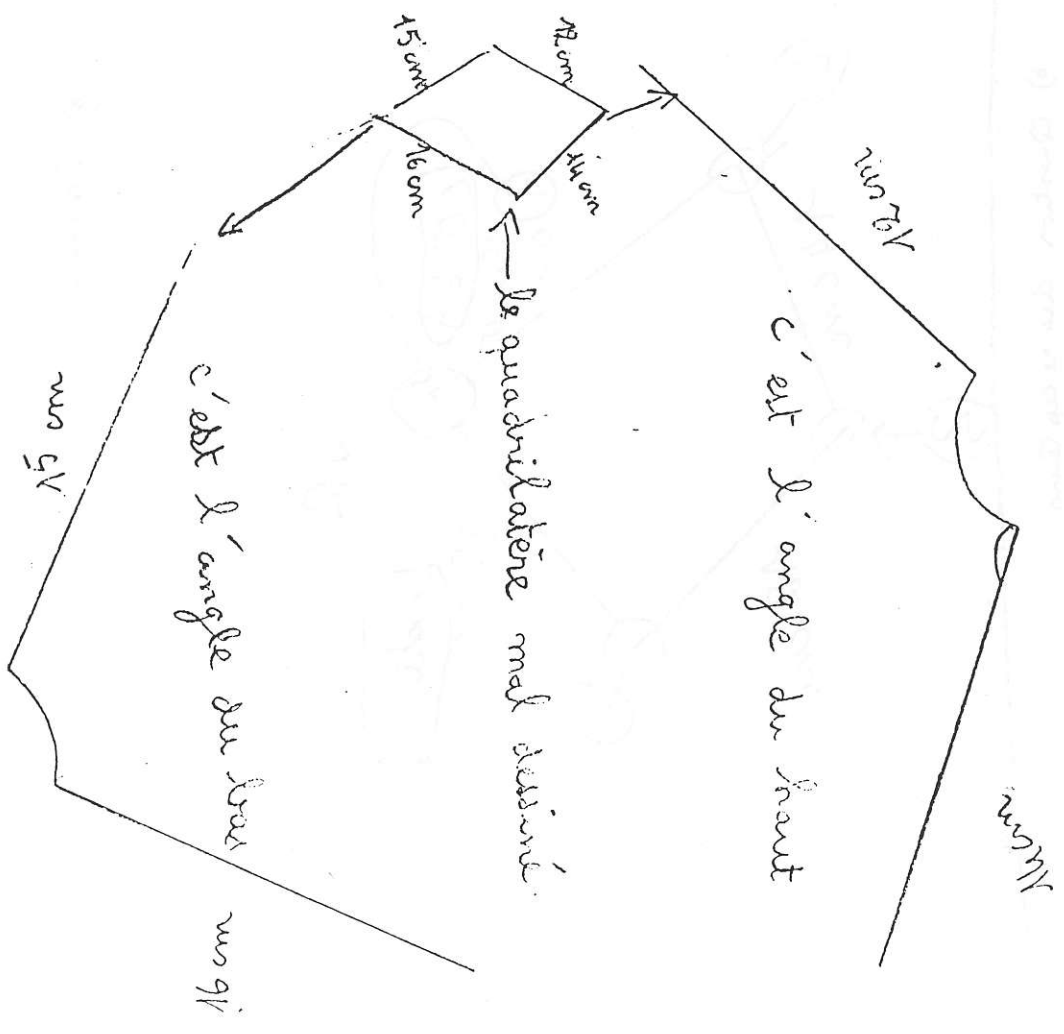 12 cm
15 cm
14 cm
16 cm
12 cm
14 cm
c'est l'angle du haut
le quadrilatère mal dessiné.
c'est l'angle du bas
15 cm
16 cm